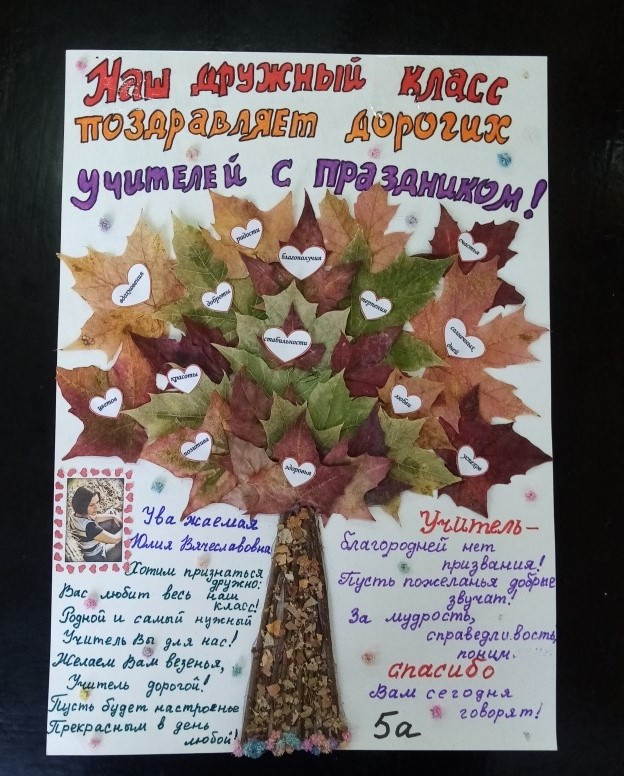 Наш дружный класс
поздравляет дорогих
учителей с праздником!
радости
благополучия
счастья
вдохновения
доброты
терпения
стабильности
солнечных
дней
красоты
цветов
любви
позитива
здоровья
успехов
Уважаемая
Юлия Вячеславовна
Хотим признаться
дружно:
Вас любит весь наш
класс!
Родной и самый нужный
Учитель Вы для нас!
Желаем Вам везенья,
Учитель дорогой!
Пусть будет настроенье
Прекрасным в день
любой!
Учитель –
благородней нет
призвания!
Пусть пожеланья добрые
звучат!
За мудрость,
справедливость,
поним.
спасибо
Вам сегодня
говорят!
5а